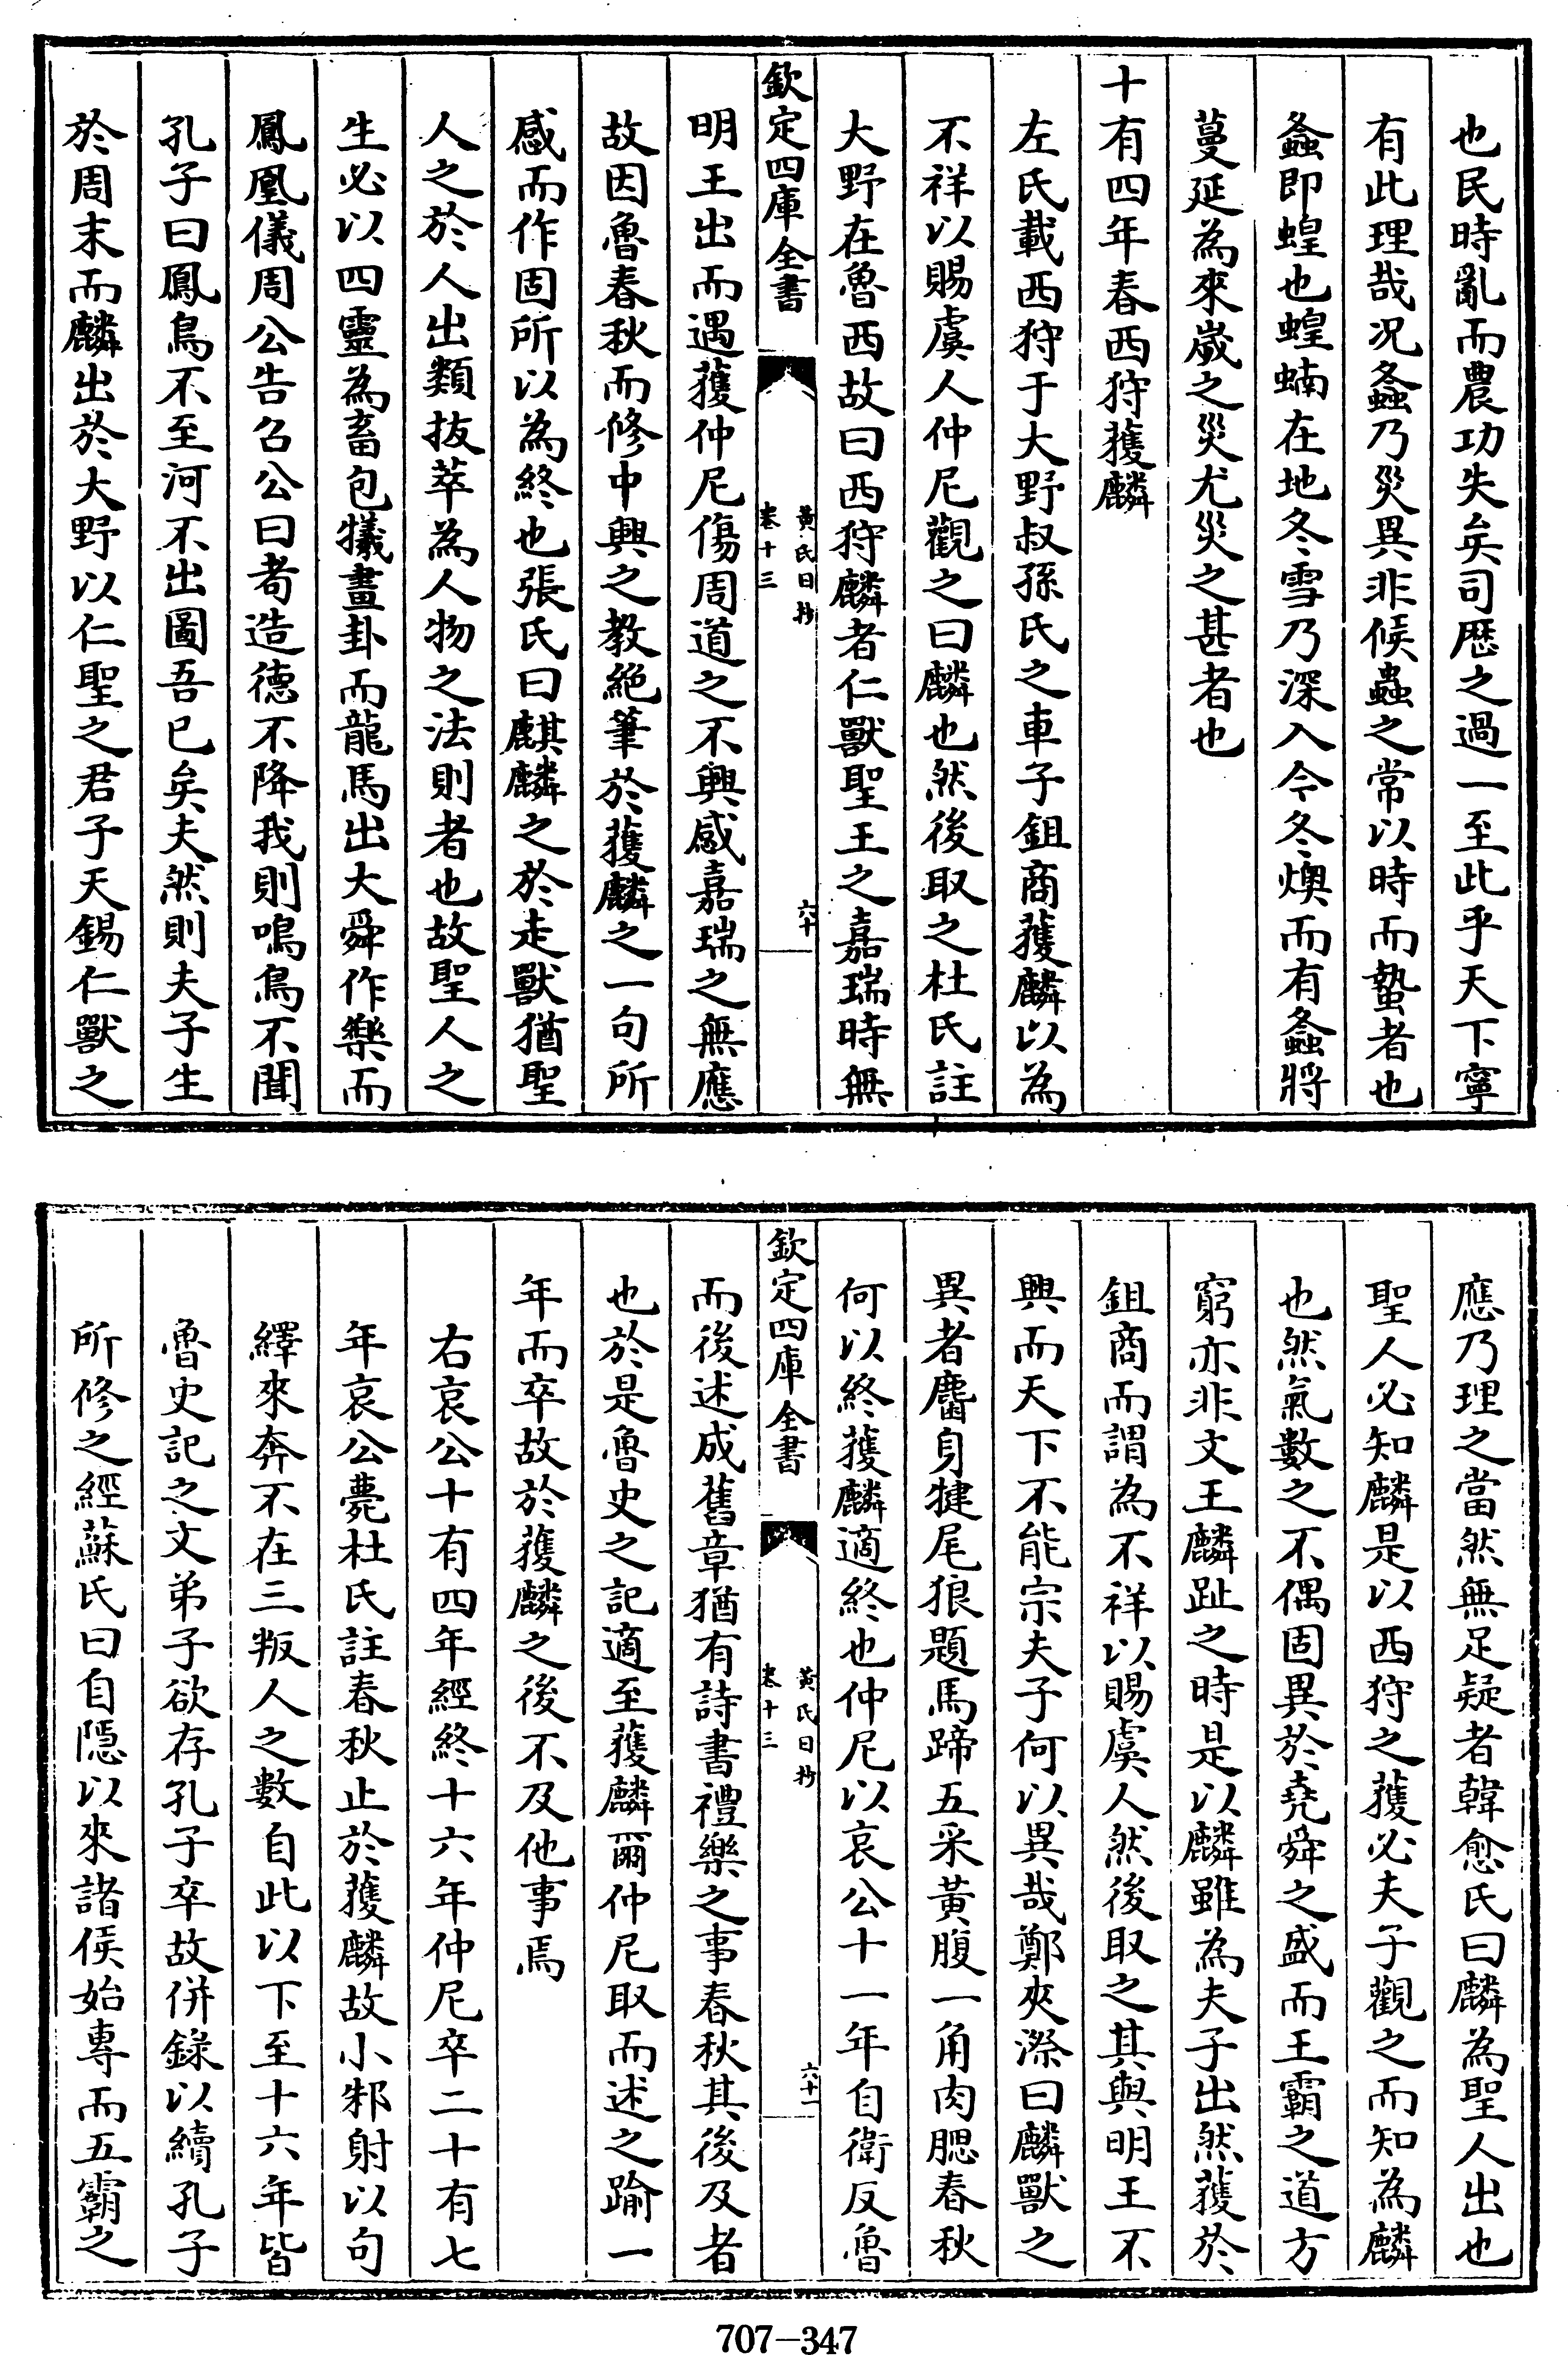 也民時亂而農功失矣司歴之過一至此乎天下寧
有此理哉况螽乃災異非候蟲之常以時而蟄者也
螽即蝗也蝗蝻在地冬雪乃深入今冬燠而有螽將
蔓延為來嵗之災尤災之甚者也
十有四年春西狩獲麟
左氏載西狩于大野叔孫氏之車子鉏商獲麟以為
不祥以賜虞人仲尼觀之曰麟也然後取之杜氏註
大野在魯西故曰西狩麟者仁獸聖王之嘉瑞時無
欽定四庫全書
黄氏日抄
卷十三
六十
明王出而遇獲仲尼傷周道之不興感嘉瑞之無應
故因魯春秋而修中興之教絶筆於獲麟之一句所
感而作固所以為終也張氏曰麒麟之於走獸猶聖
人之於人出類拔萃為人物之法則者也故聖人之
生必以四靈為畜包犧畫卦而龍馬出大舜作樂而
鳳凰儀周公告召公曰耇造德不降我則鳴鳥不聞
孔子曰鳳鳥不至河不出圖吾已矣夫然則夫子生
於周末而麟出於大野以仁聖之君子天錫仁獸之
應乃理之當然無足疑者韓愈氏曰麟為聖人出也
聖人必知麟是以西狩之獲必夫子觀之而知為麟
也然氣數之不偶固異於堯舜之盛而王霸之道方
窮亦非文王麟趾之時是以麟雖為夫子出然獲於
鉏商而謂為不祥以賜虞人然後取之其與明王不
興而天下不能宗夫子何以異哉鄭夾漈曰麟獸之
異者麕身犍尾狼題馬蹄五采黄腹一角肉腮春秋
何以終獲麟適終也仲尼以哀公十一年自衛反魯
欽定四庫全書
黄氏日抄
卷十三
六十一
而後述成舊章猶有詩書禮樂之事春秋其後及者
也於是魯史之記適至獲麟爾仲尼取而述之踰一
年而卒故於獲麟之後不及他事焉
右哀公十有四年經終十六年仲尼卒二十有七
年哀公薨杜氏註春秋止於獲麟故小邾射以句
繹來奔不在三叛人之數自此以下至十六年皆
魯史記之文弟子欲存孔子卒故併錄以續孔子
所修之經蘇氏曰自隱以來諸侯始專而五霸之
707—347